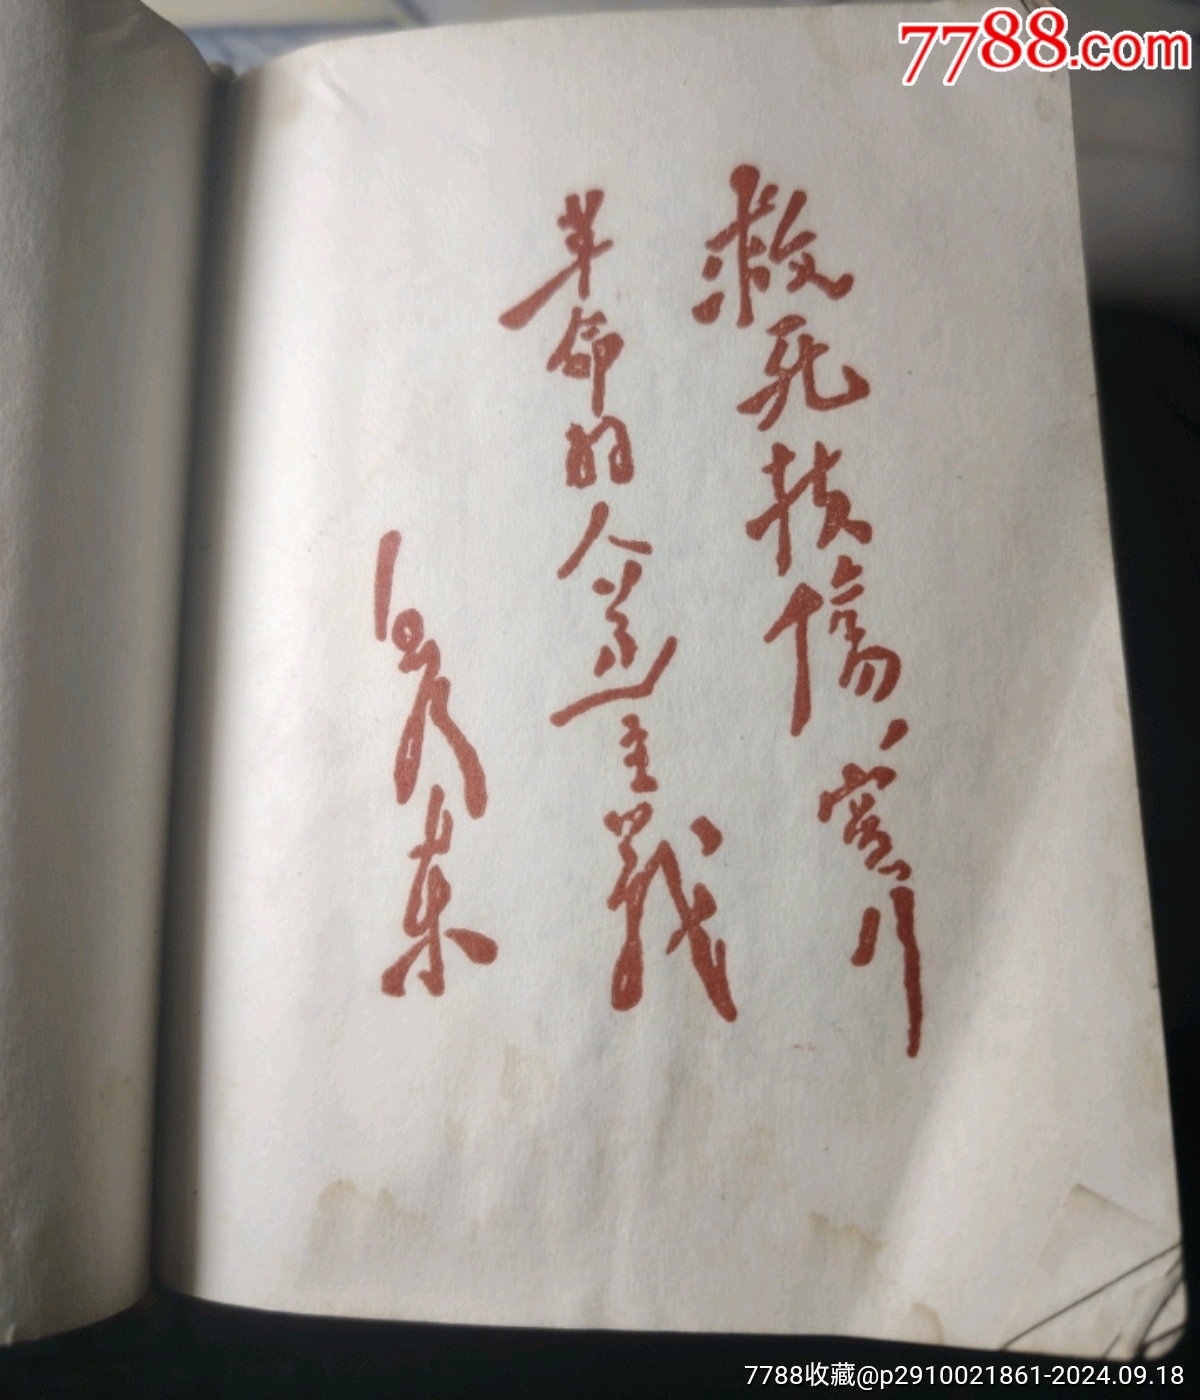 7788.com
救死扶傷，实行
革命的人道主義
毛泽东
7788收藏@p2910021861-2024.09.18